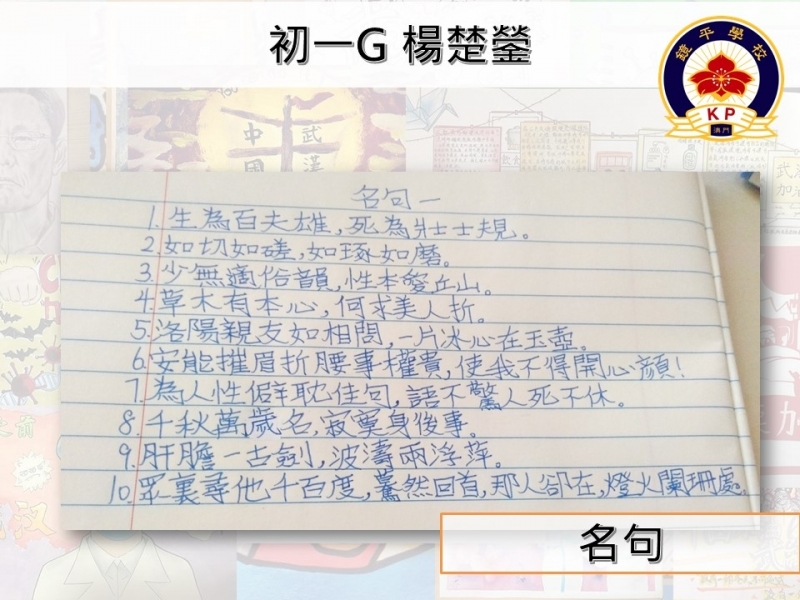 初一G 楊楚鎣
鏡平學校
KP
澳門
中國
武漢
名句一
1. 生為百夫雄,死為壯士規。
2. 如切如磋,如琢如磨。
3. 少無適俗韻,性本愛丘山。
4. 草木有本心,何求美人折。
5. 洛陽親友如相問,一片冰心在玉壺。
6. 安能摧眉折腰事權貴,使我不得開心顏!
7. 為人性僻耽佳句,語不驚人死不休。
8. 千秋萬歲名,寂寞身後事。
9. 肝膽一古劍,波濤兩浮萍。
10. 眾裏尋他千百度,驀然回首,那人卻在,燈火闌珊處。
名句